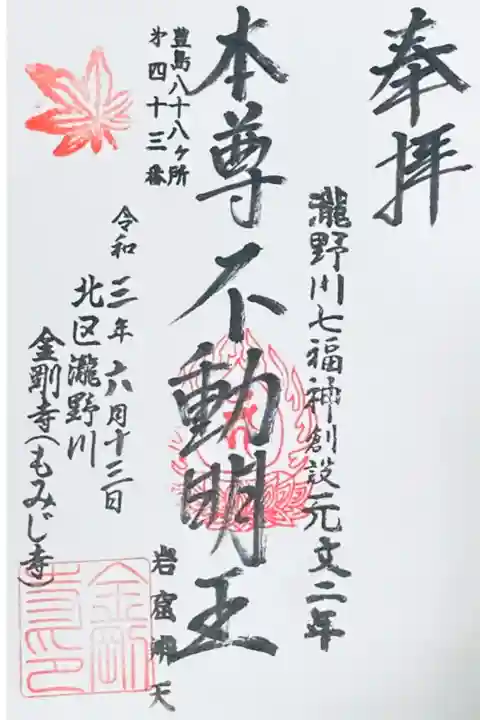 奉拝
瀧野川七福神創設元文二年
本尊不動明王
岩窟弁天
豊島八十八ヶ所
第四十三番
令和三年六月十三日
北区瀧野川
金剛寺(もみじ寺)
金剛寺印